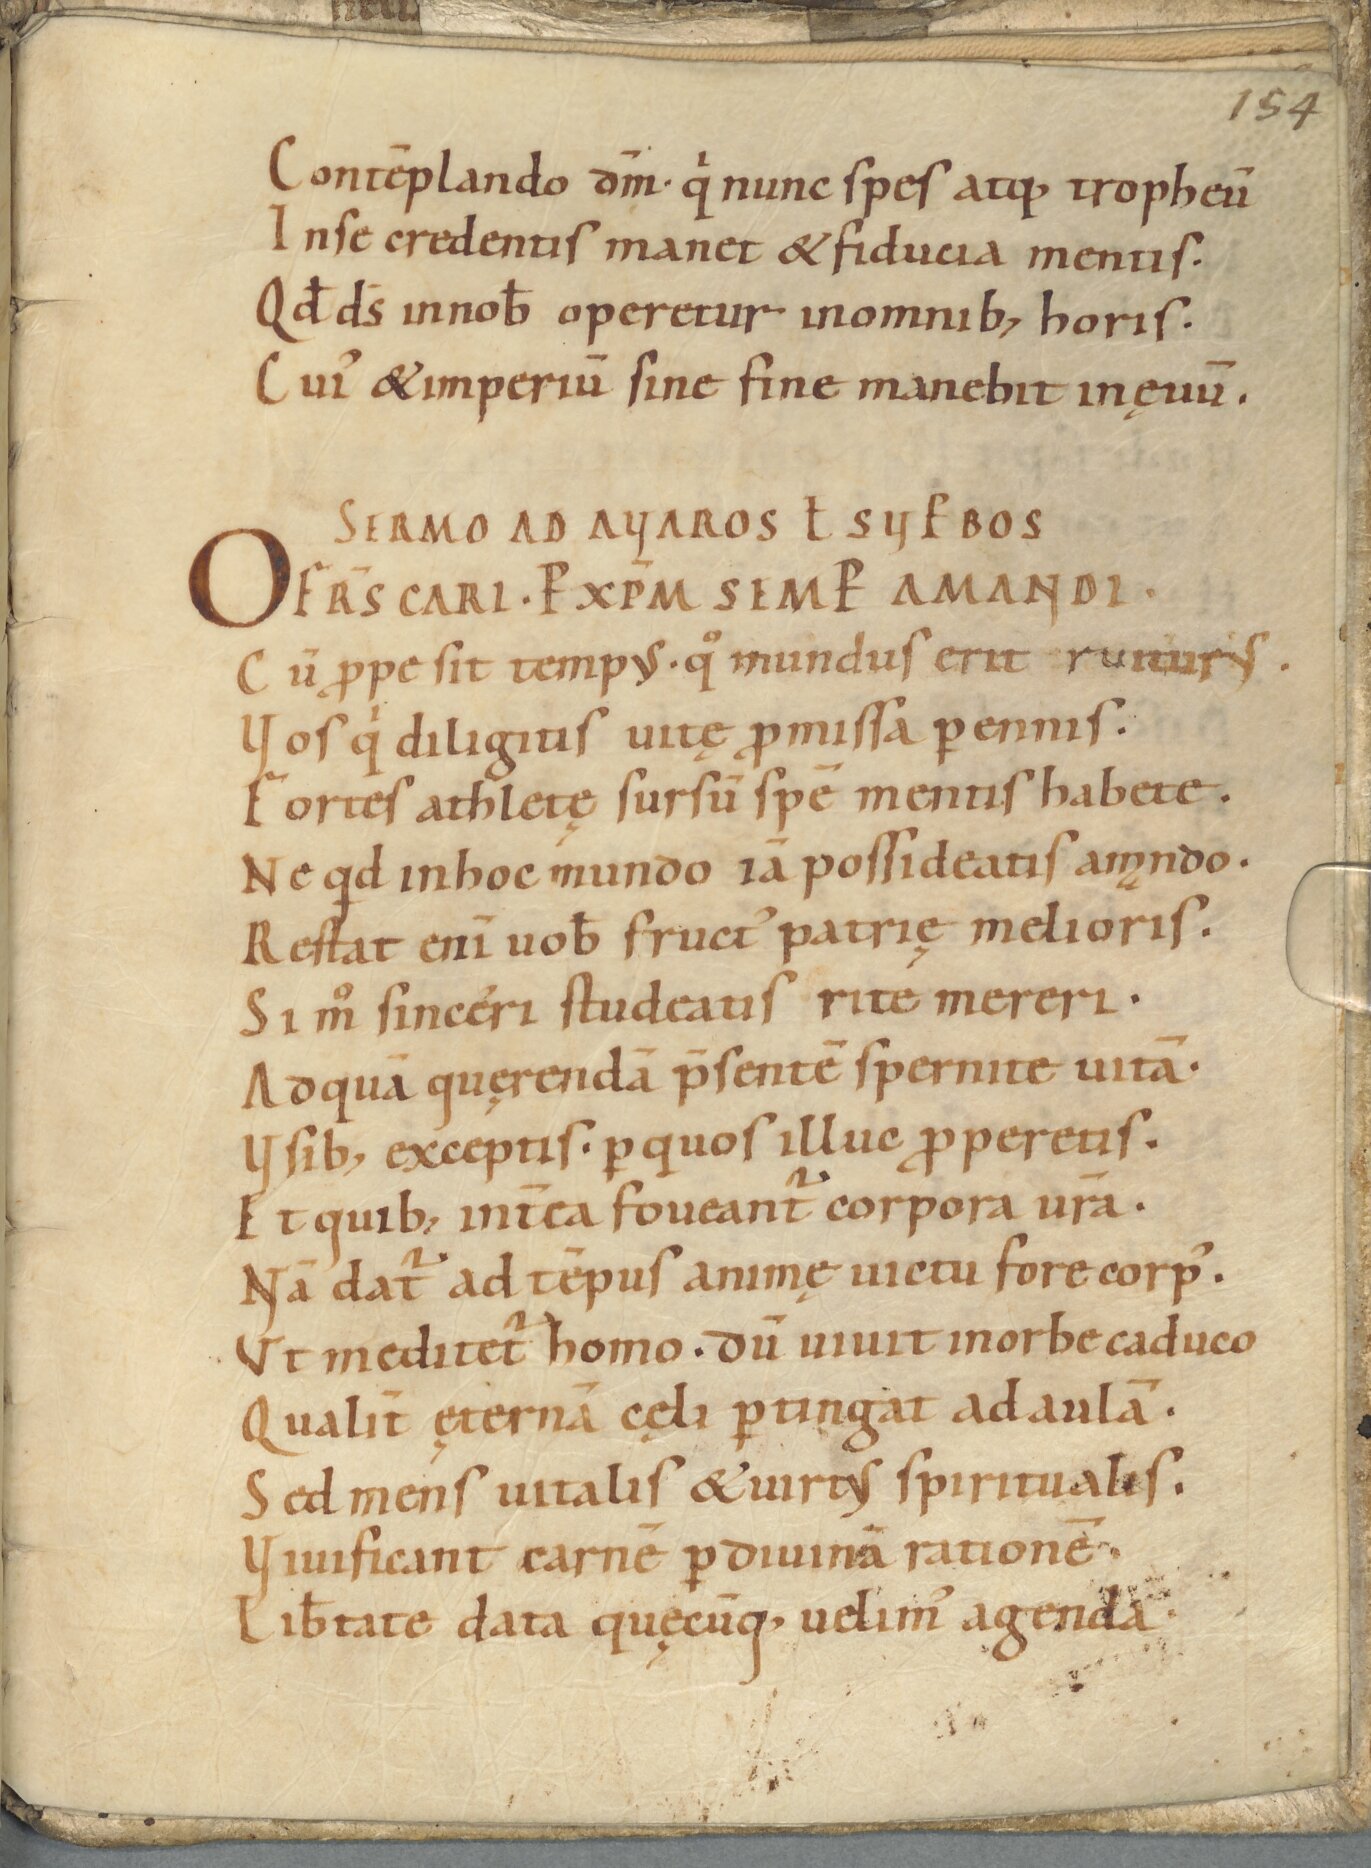 154
Contēplando dm̄. qͥ nunc spes atq; tropheū
Inse credentis manet & fiducia mentis.
Qđ ds̄ innoƀ operetur inomnib; horis.
Cuiꝰ & imperiū sine fine manebit inęuū.
SERMO AD AVAROS ł SUꝑBOS
O FR̄S CARI. ꝑ XPM̄ SEMꝑ AMANDI.
Cū ꝓpe sit tempus. qͦ mundus erit ruiturus.
Vos qͥ diligitis uitę ꝓmissa ꝑennis.
Fortes athletę sursū spē mentis habete.
Ne qd inhoc mundo iā possideatis amūndo.
Restat enī uoƀ fructꝰ patrię melioris.
Si mͦ sinceri studeatis rite mereri.
Adquā quęrendā p̄sentē spernite uitā.
Vsib; exceptis. ꝑ quos illuc ꝓperetis.
Et quib; int̄ea foueant̃ corpora ur̄a.
Nā dat̃ ad tēpus animę uictu fore corpꝰ.
Vt meditet̃ homo. dū uiuit inorbe caduco
Qualit̄ ęternā cęli ꝑtingat ad aulā.
Sed mens uitalis & uirtus spiritualis.
Viuificant carnē ꝑ diuinā rationē.
Liƀtate data quęcūq; uelimꝰ agenda.